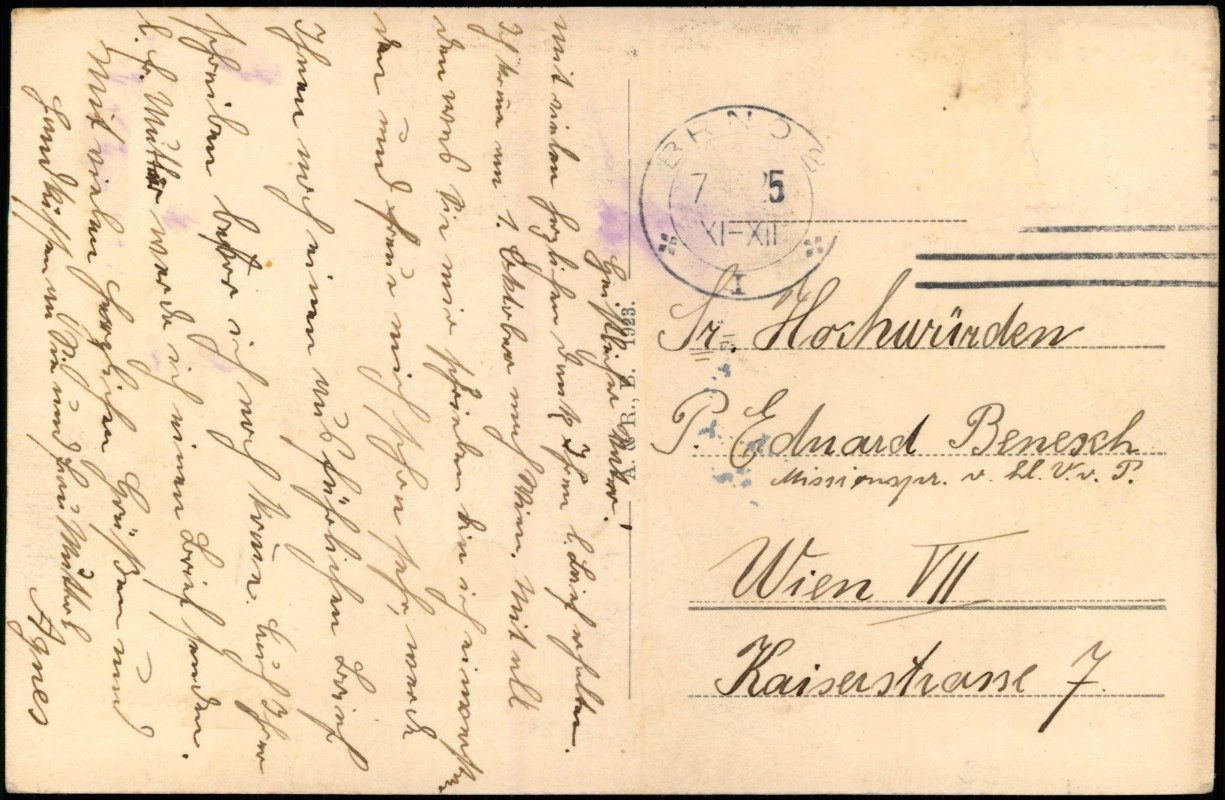 Geistlicher Vater!
Mit vielen herzlichen Dank Ihren l. Brief erhalten.
Ich komme am 1. Oktober nach Wien. Mit all
den was Sie mir schrieben bin ich einverstan
den und freue mich schon sehr, werde
Ihnen noch einen ausführlichen Brief
schreiben bevor ich noch komme. Auch Ihrer
l. Fr. Mutter werde ich einen Brief senden.
Mit vielen herzlichen Grüßen und
Handküssen an Sie und Frau Mutter
Agnes
A. & R., B. 1923.
BRNO 2
7 25
XI-XII
I
Sr. Hochwürden
P. Eduard Benesch
Missionspr. v. hl. V. v. P.
Wien VII
Kaiserstrasse 7.